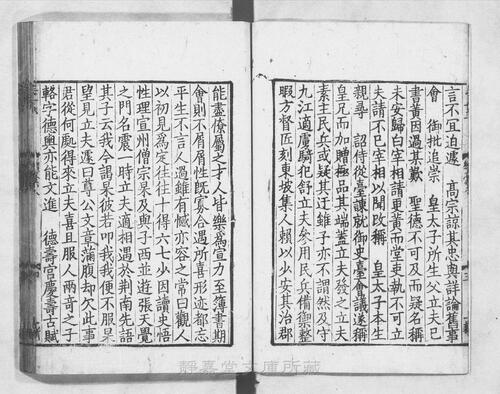 言不宜迫遽　高宗諒其忠與詳論舊事
會　御批追崇　皇太子所生父立夫已
書黃因過其歎　聖德不可及而疑名稱
未安歸白宰相請更黃而堂吏執不可立
夫請不已宰相以聞改稱　皇太子本生
親尋　詔侍從臺諫就御史臺會議遂稱
皇兄而加贈極品其端蓋立夫發之立夫
素主民兵或疑其迂雖子亦不謂然及守
九江適虜騎犯舒立夫參用民兵備禦整
暇方督匠刻東坡集人賴以少安其治郡
能盡僚屬之才人皆樂為宣力至簿書期
會則不屑屑性既寡合遇所喜形迹都忘
平生不言人過雖有憾亦容之常曰觀人
以初見為定往往十得六七少因讀史悟
性理宣州僧宗杲及與子西並遊張天覺
之門名震一時立夫適相遇於荆南先語
其子云我今謁杲彼若叩我我便不服杲
望見立夫遽曰尊公文章滿腹却欠此事
君從何處得來立夫喜且服人兩奇之子
輅字德輿亦能文進　德壽宮慶壽古賦
靜嘉堂文庫所藏